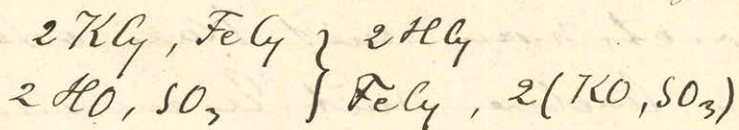 2 KCy, FeCy } 2 HCy
2 HO, SO₃ } FeCy, 2(KO, SO₃)